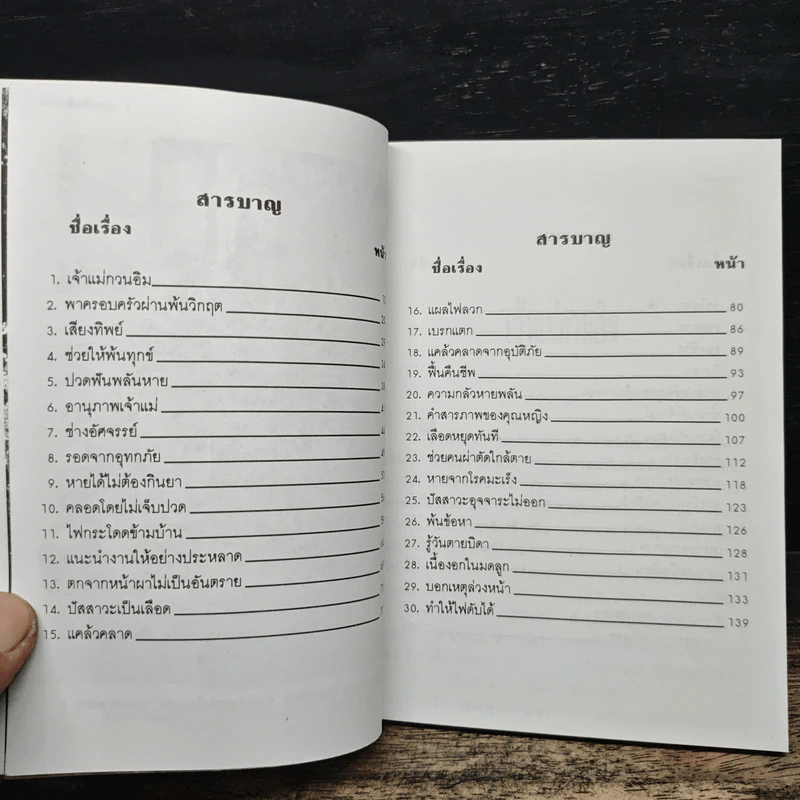 สารบาญ
ชื่อเรื่อง
หน้า
1. เจ้าแม่กวนอิม
2. พาครอบครัวผ่านพ้นวิกฤต
3. เสียงทิพย์
4. ช่วยให้พ้นทุกข์
5. ปวดฟันพลันหาย
6. อานุภาพเจ้าแม่
7. ช่างอัศจรรย์
8. รอดจากอุทกภัย
9. หายได้ไม่ต้องกินยา
10. คลอดโดยไม่เจ็บปวด
11. ไฟกระโดดข้ามบ้าน
12. แนะนำงานให้อย่างประหลาด
13. ตกจากหน้าผาไม่เป็นอันตราย
14. ปัสสาวะเป็นเลือด
15. แคล้วคลาด
สารบาญ
ชื่อเรื่อง หน้า
16. แผลไฟลวก 80
17. เบรกแตก 86
18. แคล้วคลาดจากอุบัติภัย 89
19. ฟื้นคืนชีพ 93
20. ความกลัวหายพลัน 97
21. คำสารภาพของคุณหญิง 100
22. เลือดหยุดทันที 107
23. ช่วยคนผ่าตัดใกล้ตาย 112
24. หายจากโรคมะเร็ง 118
25. ปัสสาวะอุจจาระไม่ออก 123
26. พ้นข้อหา 126
27. รู้วันตายบิดา 128
28. เนื้องอกในมดลูก 131
29. บอกเหตุล่วงหน้า 133
30. ทำให้ไฟดับได้ 139